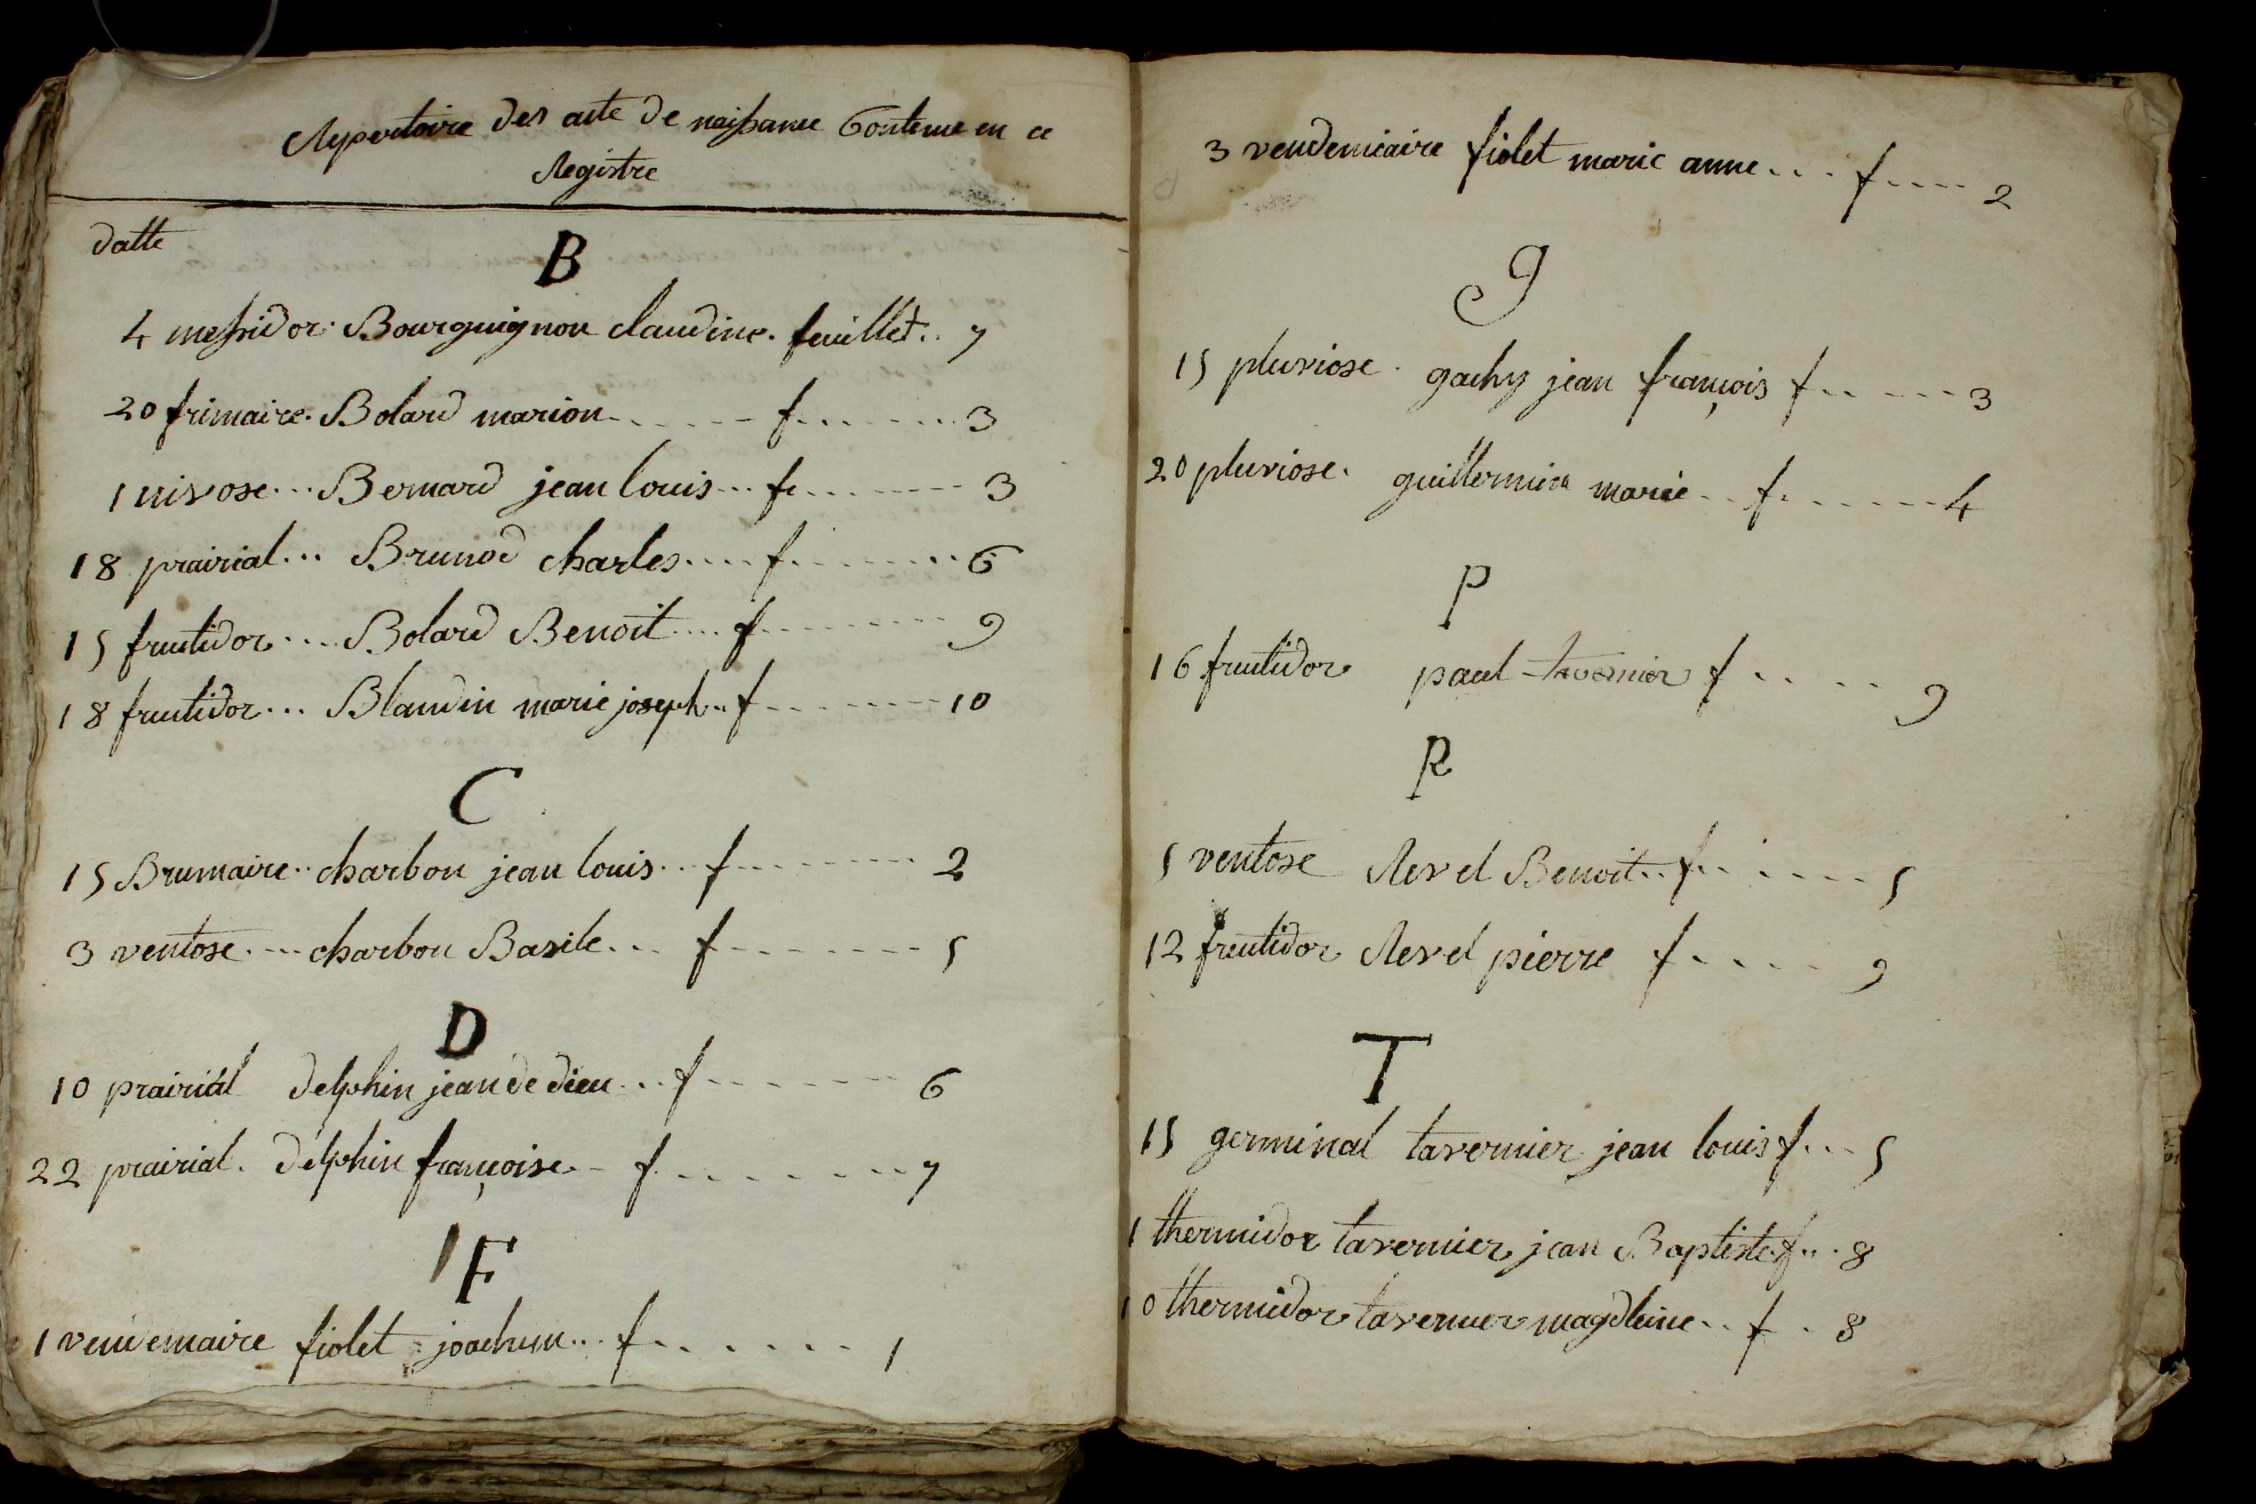 Repertoire des acte de naissance Contenue en ce
Registre
datte
B
4 messidor. Bourguignon claudine. feuillet.. 7
20 frimaire. Bolard marion...... f....... 3
1 nivose... Bernard jean louis... f....... 3
18 prairial... Brunod charles.... f....... 6
15 frutidor.... Bolard Benoit.... f....... 9
18 frutidor... Blandin marie joseph.. f....... 10
C
15 Brumaire.. charbon jean louis... f....... 2
3 ventose.... charbon Basile... f....... 5
D
10 prairial delphin jean de dieu... f....... 6
22 prairial. delphin françoise.. f....... 7
F
1 vendemaire fiolet joachim... f...... 1
3 vendemiaire fiolet marie anne.... f.... 2
g
15 pluviose. gachy jean françois f..... 3
20 pluviose. guillermin marie.. f...... 4
P
16 frutidor paul tavernier f..... 9
R
5 ventose Revel Benoit.. f...... 5
12 frutidor Revel pierre f..... 9
T
15 germinal tavernier jean louis f... 5
1 thermidor tavernier jean Baptiste f... 8
10 thermidor tavernier magdleine.. f.. 8